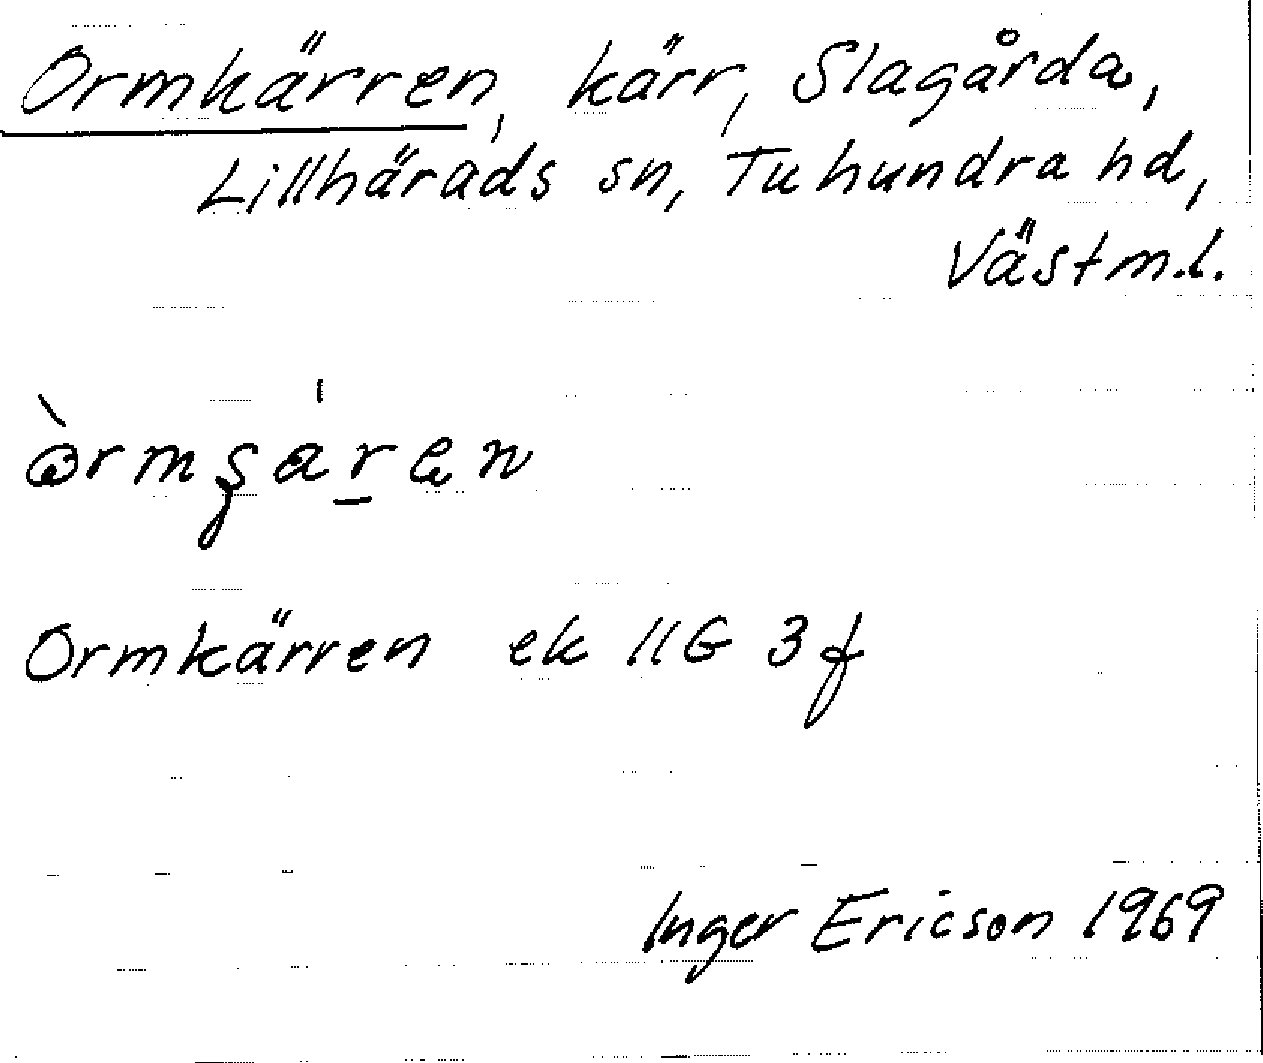 Ormkärren, kärr, Slagårda,
Lillhärads sn, Tuhundra hd,
Västm.l.
Ormkärren ek 11G 3f
Inger Ericson 1969